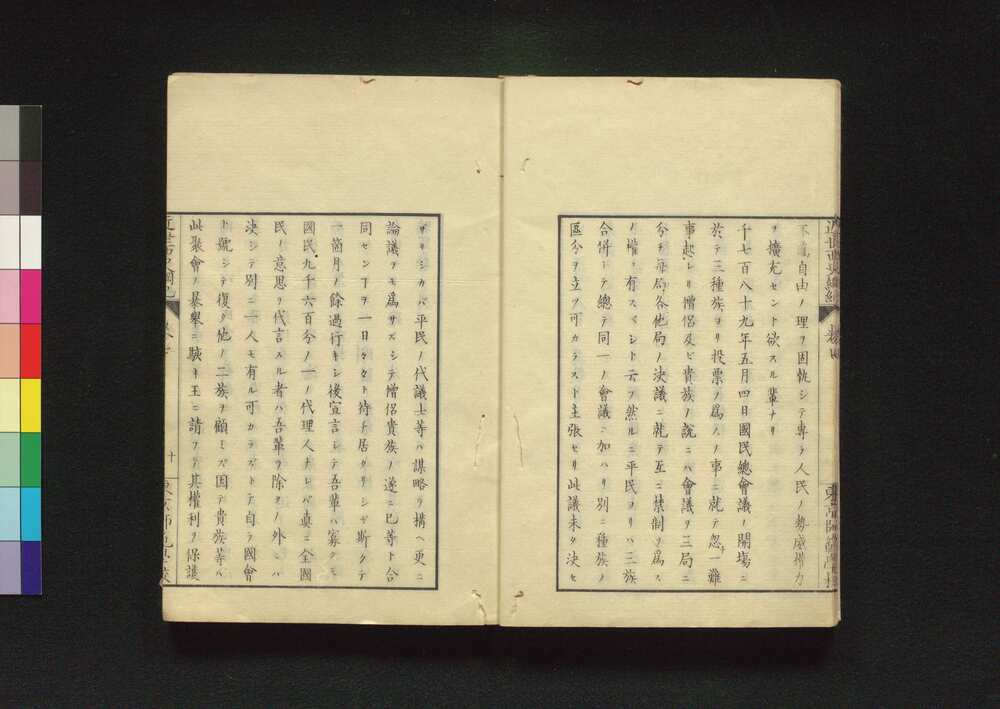 不羈自由ノ理ヲ固執シテ專ラ人民ノ勢威權力
ヲ擴充セント欲スル輩ナリ
千七百八十九年五月四日國民總會議ノ開塲ニ
於テ三種族ヨリ投票ヲ爲スノ事ニ就テ忽チ一難
事起レリ僧侶及ビ貴族ノ說ニハ會議ヲ三局ニ
分チ每局各他局ノ決議ニ就テ互ニ禁制ヲ爲ス
ノ權ヲ有スベシト云フ然ルニ平民ヨリハ三族
合併シテ總テ同一ノ會議ニ加ハリ別ニ種族ノ
區分ヲ立ツ可カラスト主張セリ此議未タ決セ
ザリシカバ平民ノ代議士等ハ謀略ヲ構ヘ更ニ
論議ヲモ爲サズシテ僧侶貴族ノ遂ニ己等ト合
同センヿヲ一日々々ト待チ居タリシガ斯クテ
一箇月ノ餘過行キシ後宣言シテ吾輩ハ寡クモ
國民九千六百分ノ一ノ代理人ナレバ眞ニ全國
民ノ意思ヲ代言スル者ハ吾輩ヲ除クノ外ニハ
決シテ別ニ一人モ有ル可カラズトテ自ラ國會
ト號シテ復タ他ノ二族ヲ顧ミズ因テ貴族等ハ
此聚會ノ暴舉ニ駭キ王ニ請フテ其權利ヲ保護
十